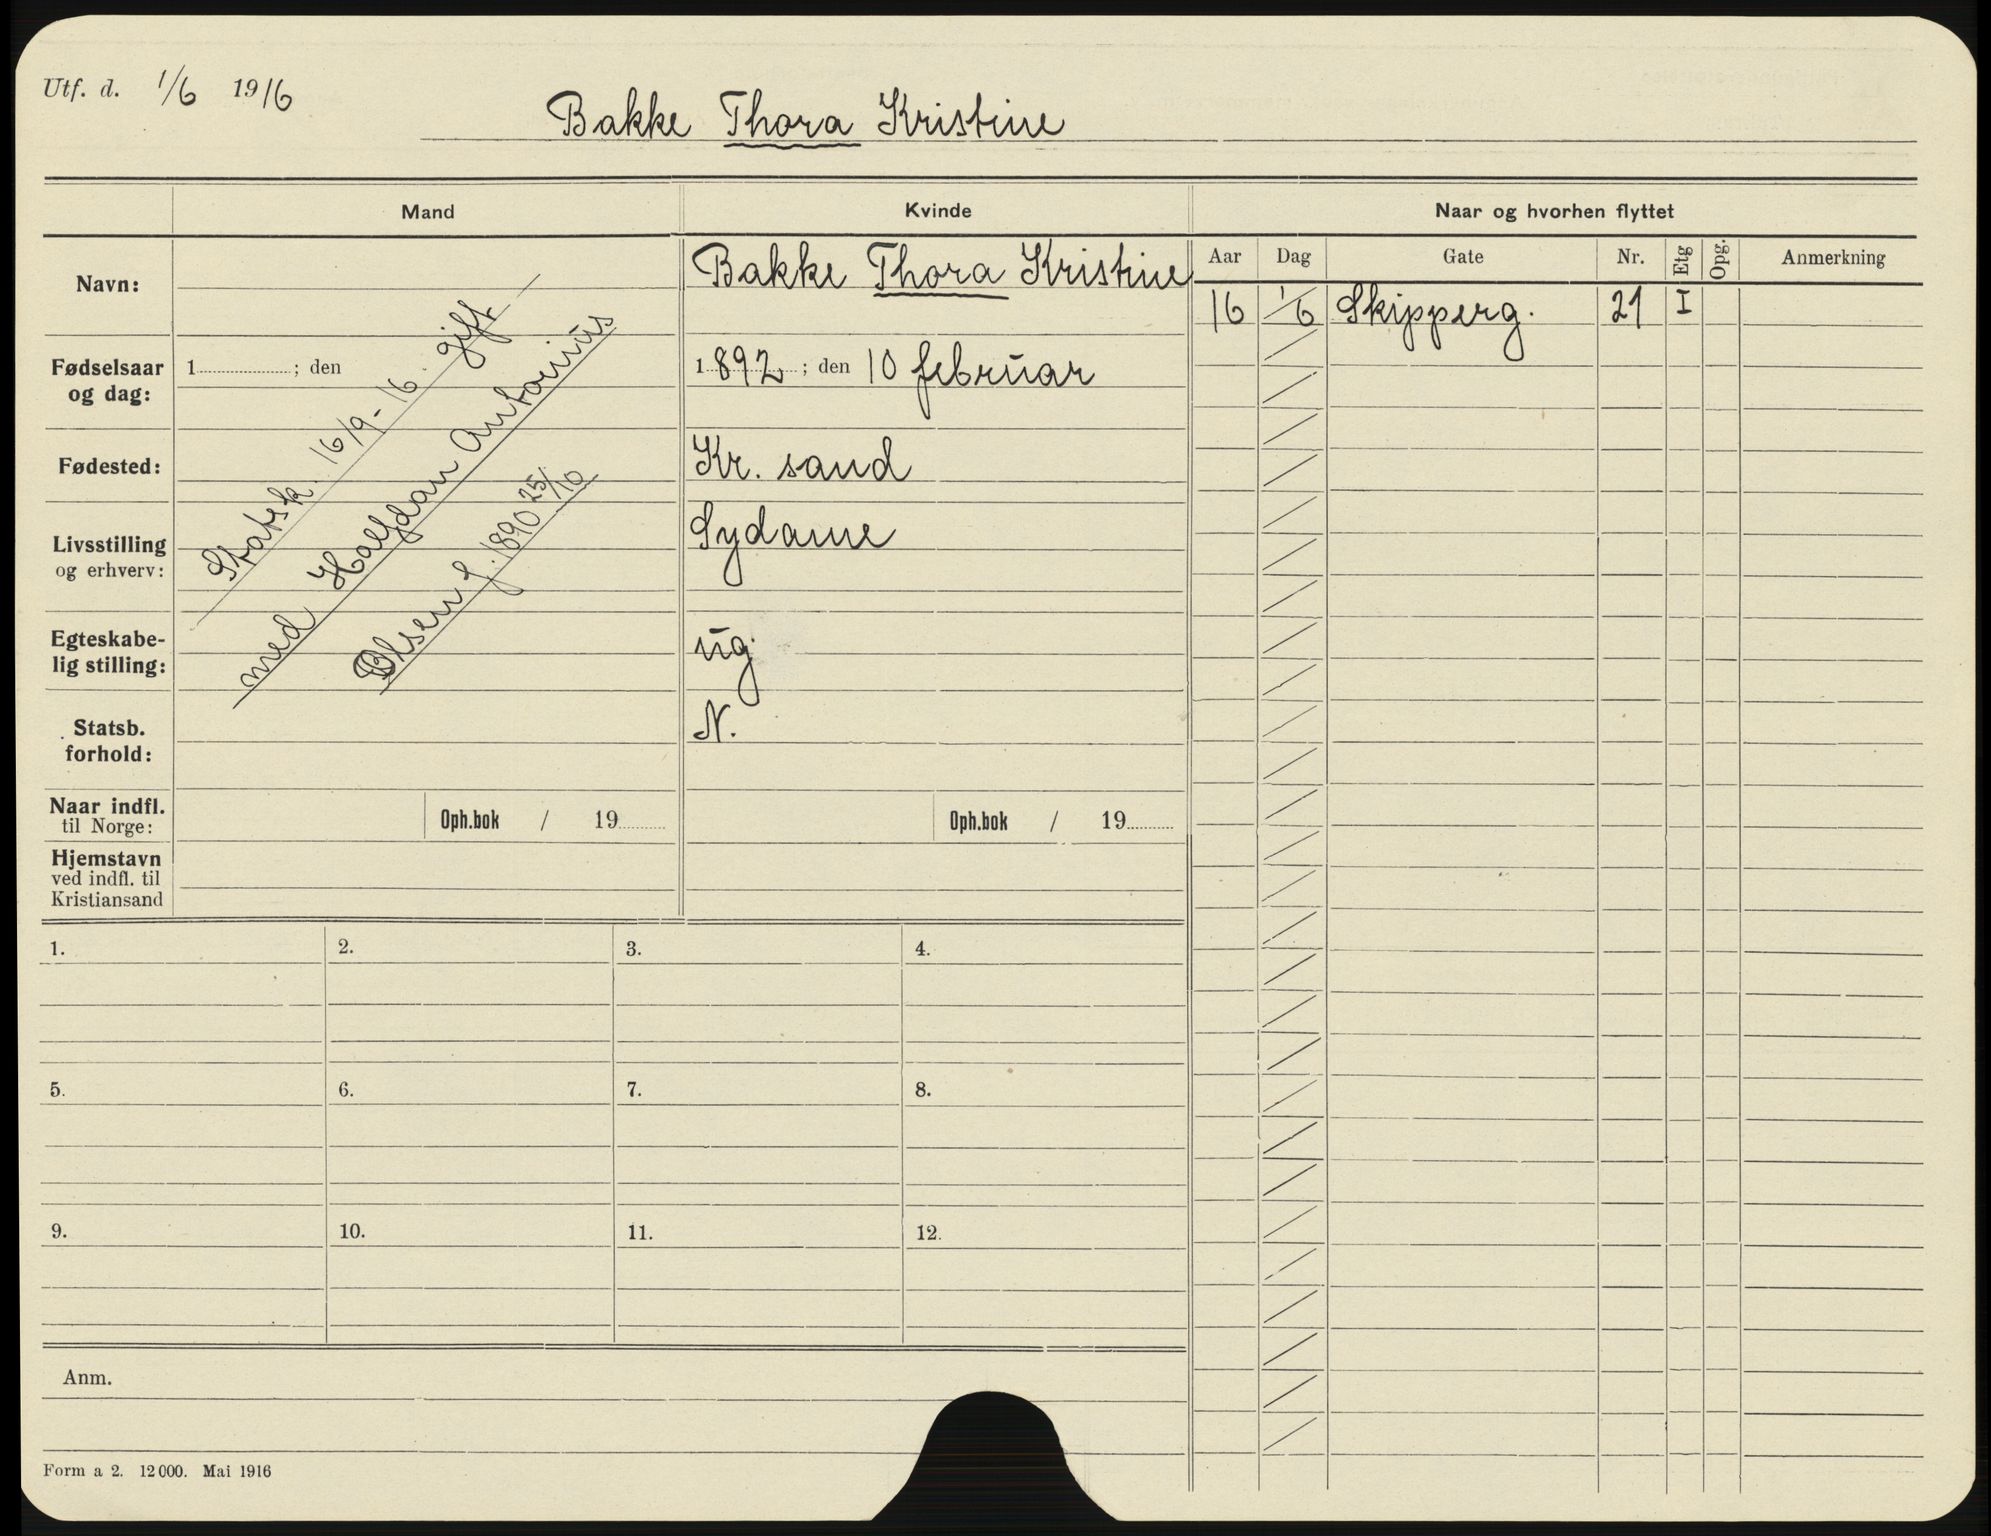 Utf. d. 1/6 1916
Bakke Thora Kristine
Mand
Kvinde
Naar og hvorhen flyttet
Navn:
Bakke Thora Kristine
Aar
Dag
Gate
Nr.
Etg
Opg.
Anmerkning
16 1/6 Skipperg. 21 I
Fødselsaar
og dag:
1 ; den
1892 ; den 10 februar
Statsk. 16/9-16. gift
med Halfdan Antonius
Olsen f. 1890 25/10
Fødested:
Kr. sand
Livsstilling
og erhverv:
Sydame
Egteskabe-
lig stilling:
ug.
Statsb.
forhold:
N.
Naar indfl.
til Norge:
Oph.bok / 19
Oph.bok / 19
Hjemstavn
ved indfl. til
Kristiansand
1.
2.
3.
4.
5.
6.
7.
8.
9.
10.
11.
12.
Anm.
Form a 2. 12000. Mai 1916